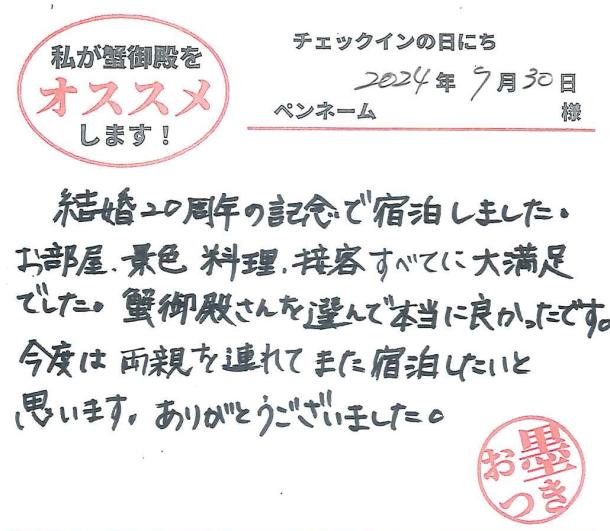 私が蟹御殿を
オススメ
します！
チェックインの日にち
2024年9月30日
ペンネーム 様
結婚20周年の記念で宿泊しました。
お部屋、景色 料理、接客すべてに大満足
でした。蟹御殿さんを選んで本当に良かったです。
今度は両親を連れてまた宿泊したいと
思います。ありがとうございました。
お墨
つき